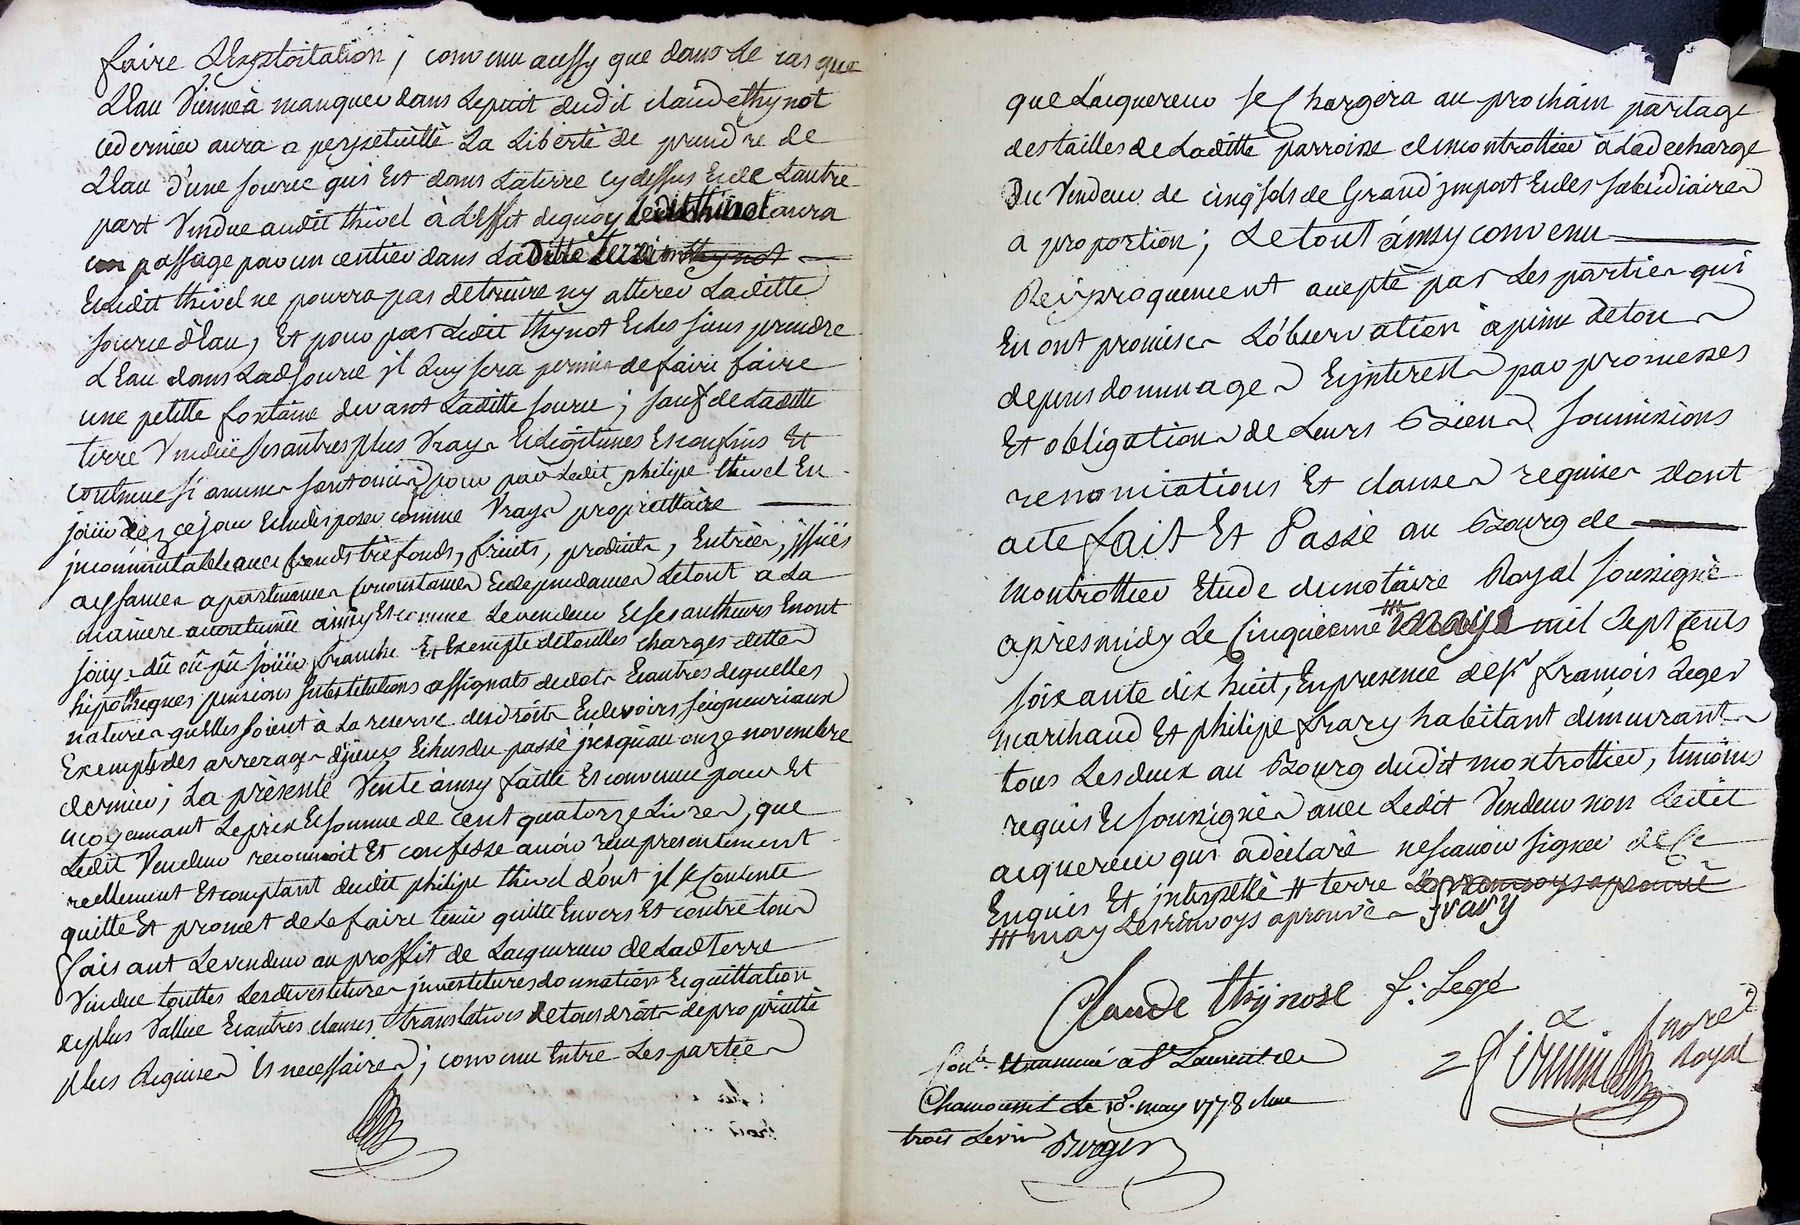 faire Lexploitation ; convenu aussy que dans Le cas que
Leau Vienne à manquer dans Le puit dudit claude thynot
ce dernier aura a perpetuitté La Liberté de prendre de
Leau d'une source qui Est dans La terre cy dessus Et de Lautre
part Vendue audit thivel à Leffet dequoy Ledit thinot aura
un passage par un centier dans La ditte terre
Et Ledit thivel ne pourra pas detruire ny alterer Laditte
source d'Eau, Et pour par Ledit thynot Et Les siens prendre
LEau dans Lad source jl Luy sera permis de faire faire
une petitte fontaine devant Laditte source ; sauf de Laditte
terre Vendüe ses autres plus Vrays Et Legitimes Et confins Et
contenue si aucuns sont omis pour par Ledit philipe thivel En
joüir dez ce jour Et en disposer comme Vray propriettaire
jncommutable avec fonds trèfonds, fruits, produits, Entrées, jssües
aysances apartenances circonstances Et dependances Le tout a La
maniere accoutumée ainsy Et comme Le vendeur Et ses autheurs En ont
jouy, dû où pû joüir franche Et Exempte de touttes charges dettes
hipotheques pensions substitutions assignats de dots Et autres de quelles
natures quElles soient à La reserve des droits Et devoirs seigneuriaux
Exempts des arrerages d'jceux Echus du passé jusqu'au onze novembre
dernier ; La présente Vente ainsy faitte Et convenue pour Et
moyennant Le prix Et somme de cent quatorze Livres, que
Ledit Vendeur reconnoit Et confesse avoir reçu presentement
reellement Et comptant dudit philipe thivel dont jl se contente
quitte Et promet de Le faire tenir quitte Envers Et contre tous
faisant Le vendeur au proffit de Lacquereur de Lad terre
Vendue touttes Les devestitures jnvestitures donnation Et quittation
de plus Vallue Et autres clauses translatives de tous droits de proprietté
plus Requises Et necessaires ; convenu Entre Les parties
que Lacquereur se Chargera au prochain partage
des tailles de Laditte parroisse de montrottier à La decharge
Du Vendeur de cinq sols de Grand jmpost Et des subsidiaires
a proportion ; Le tout ainsy convenu
Reciproquement accepté par Les parties qui
En ont promises Lobservation à peine de tous
depens dommages Et jnterests par promesses
Et obligations de Leurs Biens soumissions
renonciations Et clauses requises dont
acte fait Et Passé au Bourg de
montrottier Etude du notaire Royal soussigné
aprés midy Le Cinquieme mil sept Cents
soixante dix huit, En presence de sr francois Leger
marchand Et philipe frary habitant demeurants
tous Les deux au Bourg dudit montrottier, temoins
requis Et soussignés avec Ledit Vendeur non Ledit
acquereur qui a déclaré ne scavoir signer de ce
Enquis Et jnterpellé # terre
### may Les renvoys aprouvés frary
Claude thynost f: Legé
notre Royal
Contle Et insinué a St Laurent de
Chamousset Le 10 may 1778 Reçu
trois Livres
Berger